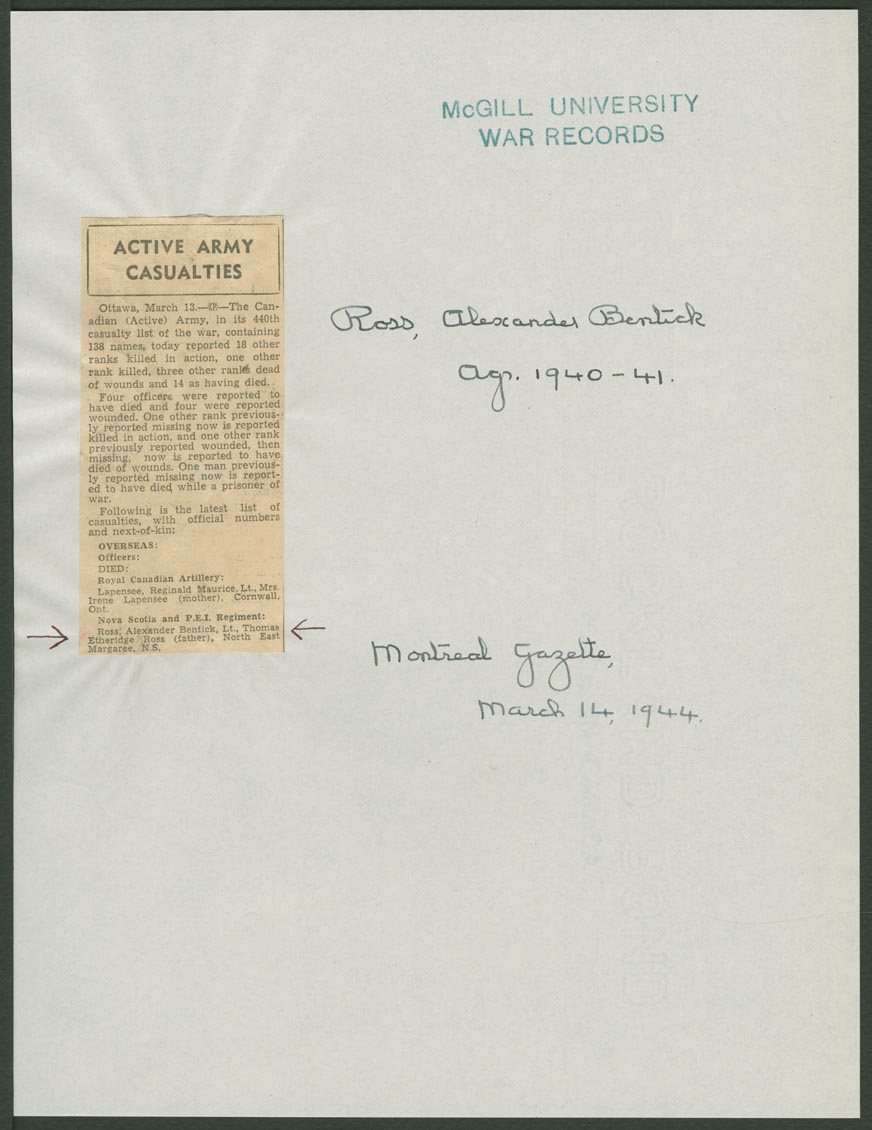 McGILL UNIVERSITY
WAR RECORDS
ACTIVE ARMY
CASUALTIES
Ottawa, March 13.—(CP)—The Can-
adian (Active) Army, in its 440th
casualty list of the war, containing
138 names, today reported 18 other
ranks killed in action, one other
rank killed, three other ranks dead
of wounds and 14 as having died.
Four officers were reported to
have died and four were reported
wounded. One other rank previous-
ly reported missing now is reported
killed in action, and one other rank
previously reported wounded, then
missing, now is reported to have
died of wounds. One man previous-
ly reported missing now is report-
ed to have died while a prisoner of
war.
Following is the latest list of
casualties, with official numbers
and next-of-kin:
OVERSEAS:
Officers:
DIED:
Royal Canadian Artillery:
Lapensee, Reginald Maurice, Lt., Mrs.
Irene Lapensee (mother), Cornwall,
Ont.
Nova Scotia and P.E.I. Regiment:
Ross, Alexander Bentick, Lt., Thomas
Etheridge Ross (father), North East
Margaree, N.S.
Ross, Alexander Bentick
Agr. 1940-41.
Montreal Gazette,
March 14, 1944.